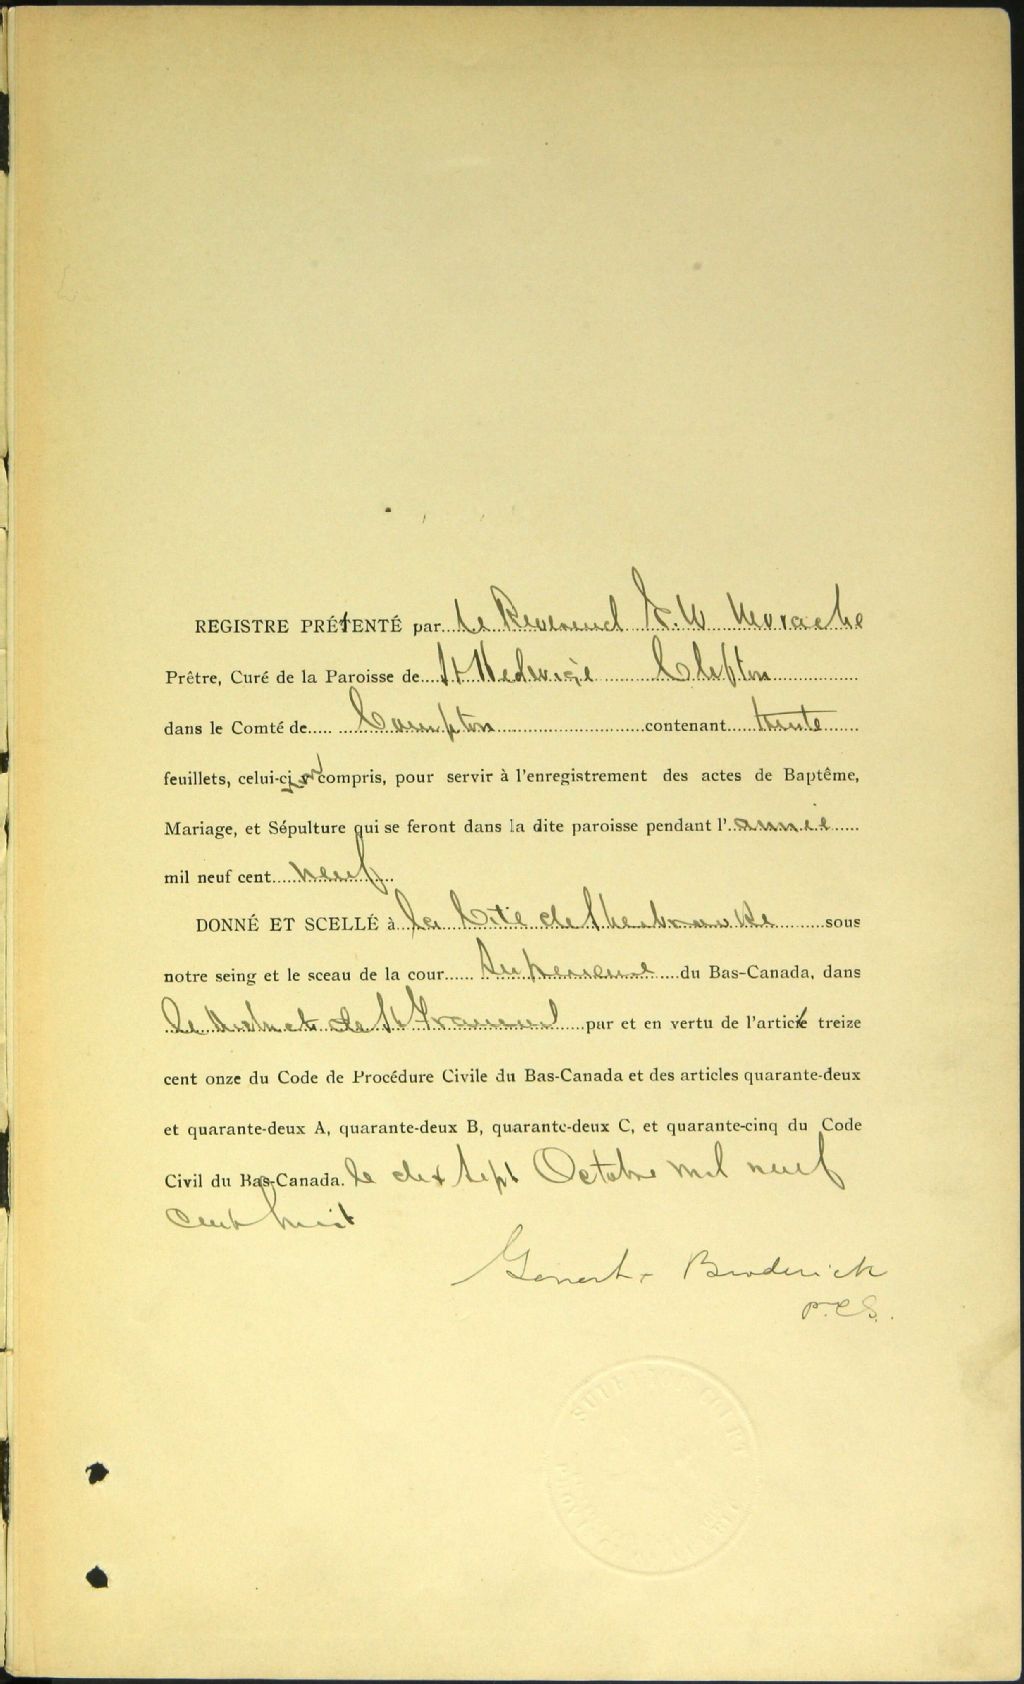 REGISTRE PRÉTENTÉ par le Reverend E.W Morache
Prêtre, Curé de la Paroisse de St Hedwige Clifton
dans le Comté de Compton contenant trente
feuillets, celui-ci y compris, pour servir à l'enregistrement des actes de Baptême,
Mariage, et Sépulture qui se feront dans la dite paroisse pendant l'année
mil neuf cent neuf
DONNÉ ET SCELLÉ à la Cité de Sherbrooke sous
notre seing et le sceau de la cour Superieure du Bas-Canada, dans
le District de St Francois par et en vertu de l'article treize
cent onze du Code de Procédure Civile du Bas-Canada et des articles quarante-deux
et quarante-deux A, quarante-deux B, quarante-deux C, et quarante-cinq du Code
Civil du Bas-Canada. le dix Sept Octobre mil neuf
cent huit
Genest & Broderick
P.C.S.
SUPERIOR COURT